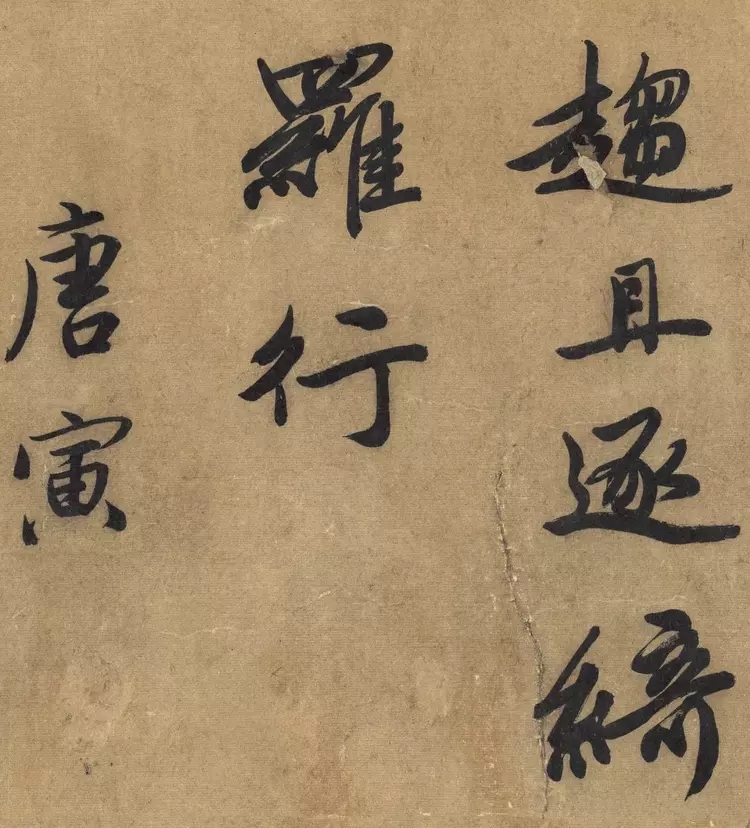 趨且逐綺
羅行
唐寅